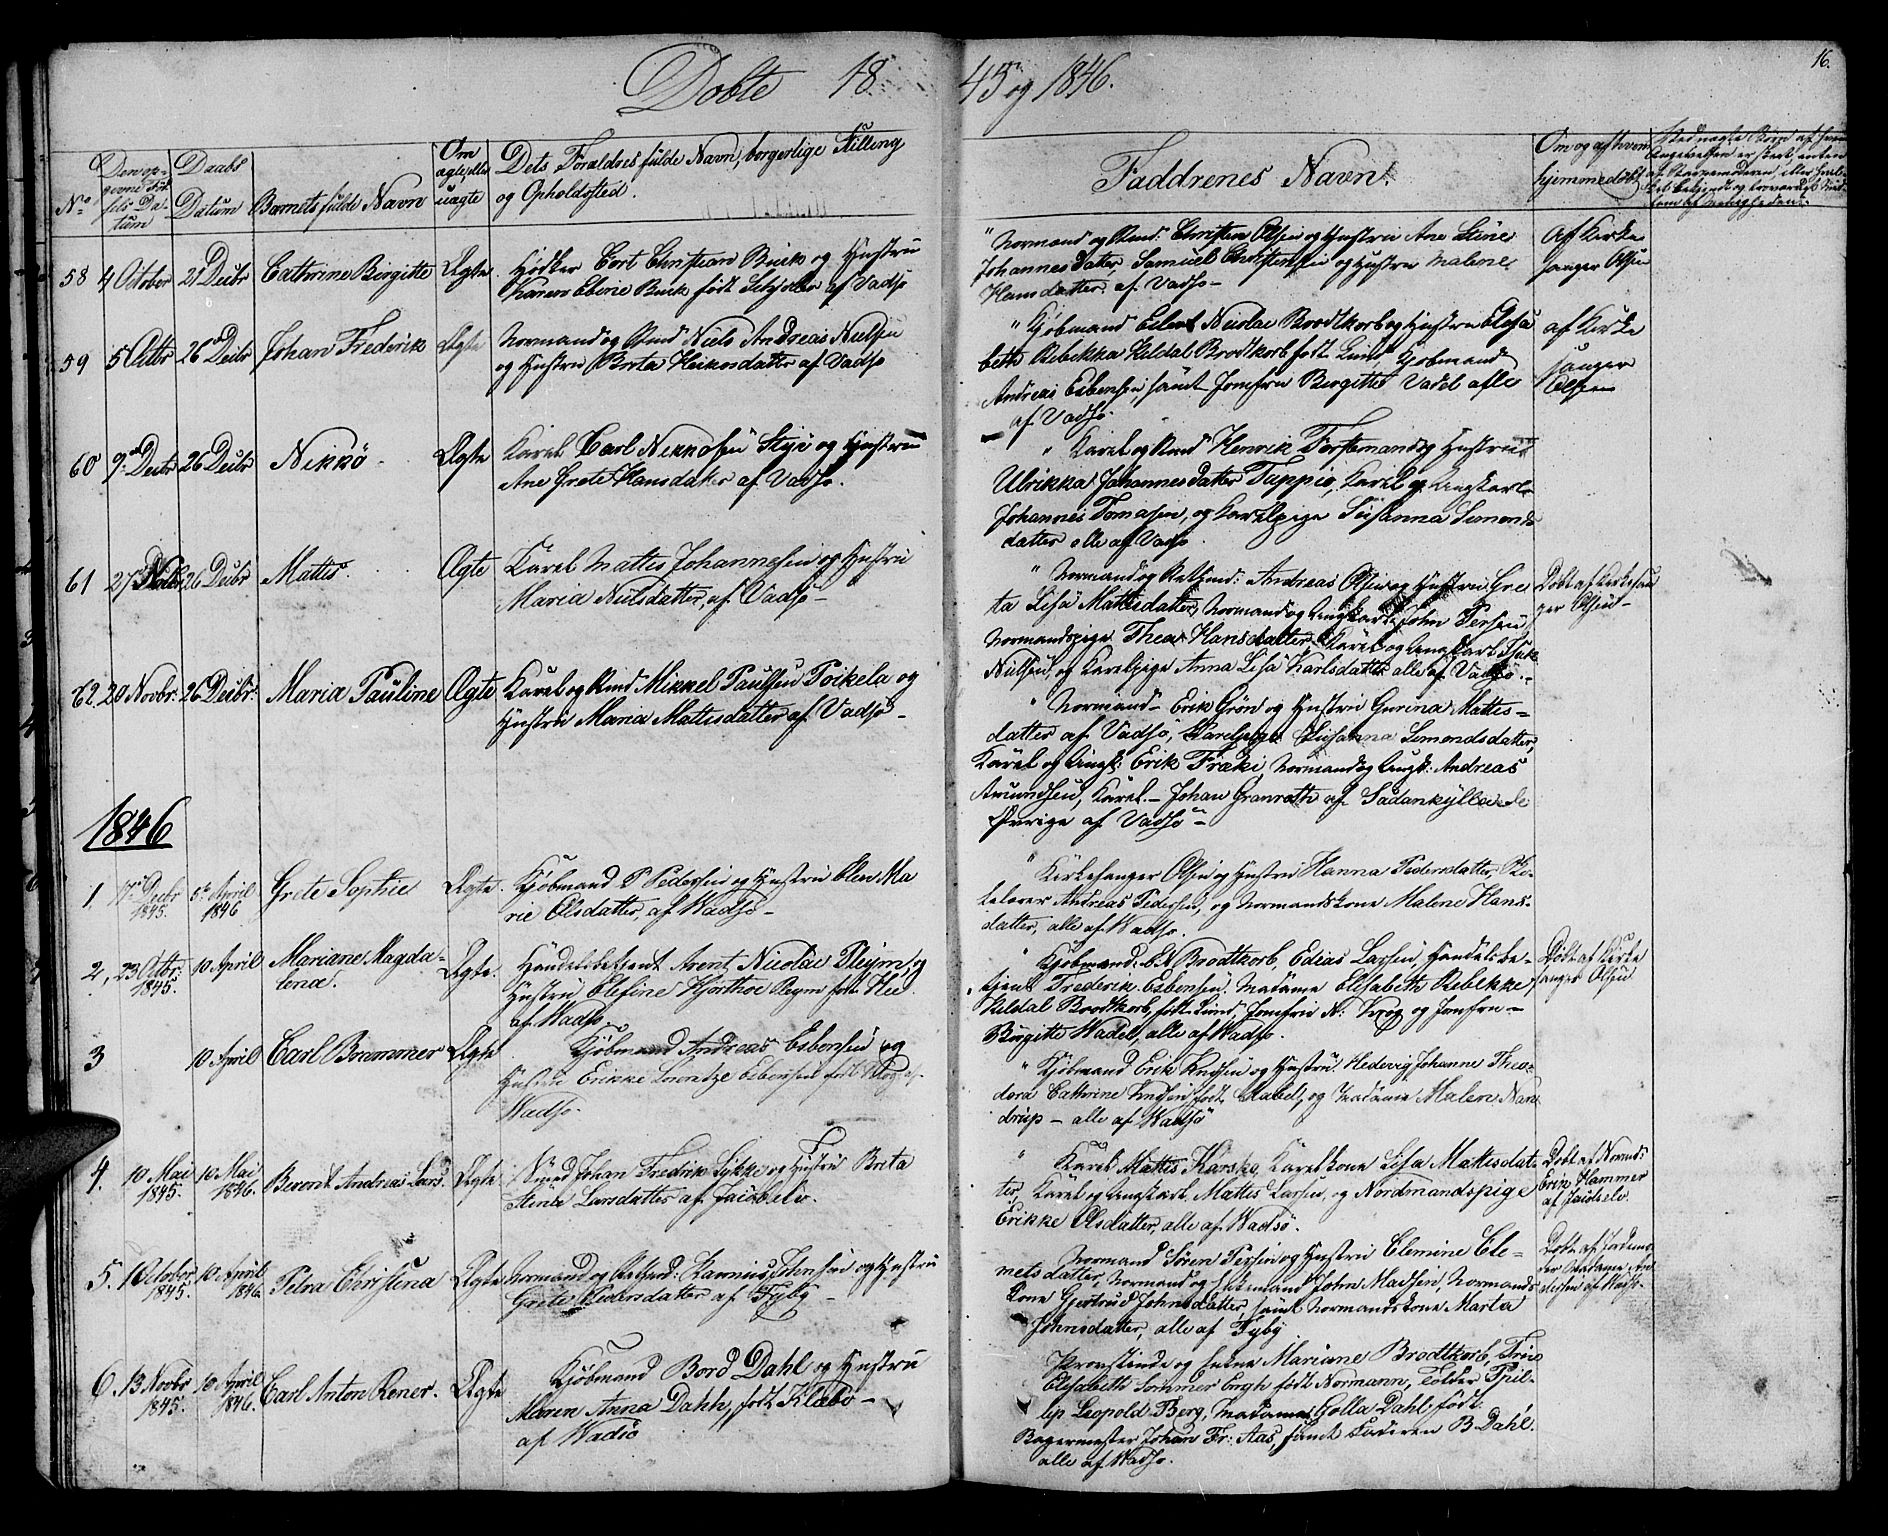 16.
Døbte 1845 og 1846.
No
Den opgivne Fødsels Datum
Daabs Datum
Barnets fulde Navn
Om ægte eller uægte
Dets Forældres fulde Navn, borgerlige Stilling og Opholdssted.
Faddrenes Navn.
Om og af hvem hjemmedøbt
58 4 October 21 Decbr Cathrine Birgitte Ægte.
og Hustru
af Vadsø
" Normand og Rmd: Christen Olsen og Hustru Ane Stine
Johannesdatter, Samuel Christensen og Hustru Malene
Hansdatter af Vadsø –
Af Kirke
sanger Olsen
59 5 Octbr 26 Decbr Johan Frederik Ægte
Normand og Rmd Niels Andreas Nielsen
og Hustru Brita Heiksdatter af Vadsø
" Kjøbmand Esbert Nicolai Brodtkorb og Hustru Elisa
beth Rebekka Kildal Brodtkorb født Lund Kjøbmand
Andreas Esbensen, samt Jomfru Birgitte Vadel alle
af Vadsø
af Kirke
sanger
Olsen
60 9 Decbr 26 Decbr Nikkø Ægte
og Hustru
Ane Grete Hansdatter af Vadsø.
" Karel og Rmd Henrik Forstemand og Hustru
Ulrikka Johannesdatter Tuppio, Karel og Ungkarl
Johannes Tomasen, og Karelpige Susanna Simonds
datter alle af Vadsø
61 27 26 Decbr Mattis. Ægte
Karel Mattis Johannesen og Hustru
Maria Nielsdatter, af Vadsø –
" Normand og Rmd: Andreas Olsen og Hustru Gre
ta Lisa Mattisdatter, Normand og Ungkarl John Persen,
Normandspige Thea Hansdatter, Karel og Ungkarl
Nielsen, og Karelpige Anna Lisa Karlsdatter alle af Vadsø. –
Døbt af Kirkesan
ger Olsen –
62. 20 Novbr. 26 Decbr. Maria Pauline Ægte
Karel og Rmd Mikkel Paulsen Poikela og
Hustru Maria Mattisdatter af Vadsø –
" Normand – Erik Grøn og Hustru Gurina Mattis-
datter af Vadsø, Karelpige Susanna Simondsdatter,
Karel og Ungk: Erik Fræki, Normand og Ungk: Andreas
Amundsen, Karel. – Johan Granroth af Sodankylla de
øvrige af Vadsø –
1846
1 17 Decbr 1845. 5 April 1846 Grete Sophie Ægte.
Kjøbmand P Pedersen og Hustru Elen Ma
rie Olsdatter, af Wadsø –
" Kirkesanger Olsen og Hustru Hanna Pedersdatter, Sko-
lelærer Andreas Pedersen, og Normandskone Malene Hans-
datter, alle af Wadsø.
2, 23 Octbr. 1845. 10 April Mariane Magda-
lena. Ægte.
Handelsbetient Arent Nicolai Pleym, og
Hustru Elefine Hjorthoe Pleym født
af Wadsø
" Kjøbmand: E N Brodtkorb, Edias Larsen, Handelsbe-
tjent Frederik Esbensen. Madame Elisabeth Rebekke
Kildal Brodtkorb, født Lund, Jomfru N: Krog og Jomfru –
Birgitte Wadel, alle af Wadsø.
Døbt af Kirke
sanger Olsen
3 10 April Carl Bremmer Ægte
Kjøbmand Andreas Esbensen og
Hustru Erikke Lorentze Esbensen født
Wadsø.
" Kjøbmand Erik Knudsen og Hustru. Hedevig Johanne Theo-
dora Cathrine født og Madame Malene Nan
drup – alle af Wadsø
4. 10 Mai 1845. 10 Mai 1846. Berent Andreas Lars. Ægte.
Nmd Johan Fredrik Lykke og Hustru Brita
Stina Larsdatter af Jacobselv.
" Karel Mattis Karsko, Karelkone Lisa Mattisdat
ter, Karel og Ungkarl Mattis Larsen, og Nordmandspige
Erikke Olsdatter, alle af Wadsø.
Døbt af Normd:
Erik Hammer
af Jacobselv.
5. 1 October 1845. 10 April 1846. Petra Christina Ægte
Johnsen og Hustru
Grete Pedersdatter af Fyby –
Normand Sören Persen og Hustru Elemine Ele-
metsdatter, Normand og John Madsen, Normands
kone Gjertrud Johnsdatter, samt Normandskone Marta
Johnsdatter, alle af Fyby
Døbt af Jordemo
der Madame An
dersen af Wadsø.
6. 13 Novbr 1845. 10 April 1846. Carl Anton Roner. Ægte
Kjøbmand Bord Dahl og Hustru
Maren Anna Dahl, født Klæbo –
af Wadsø
Provstinde og Enke Mariane Brodtkorb, Frue
Elisabeth Sommer Engh født Normann, Tolder Phil-
lip Leopold Berg, Madame Golla Dahl født
Bagermester Johan Fr: Aas, samt Faderen B Dahl.
alle af Wadsø.